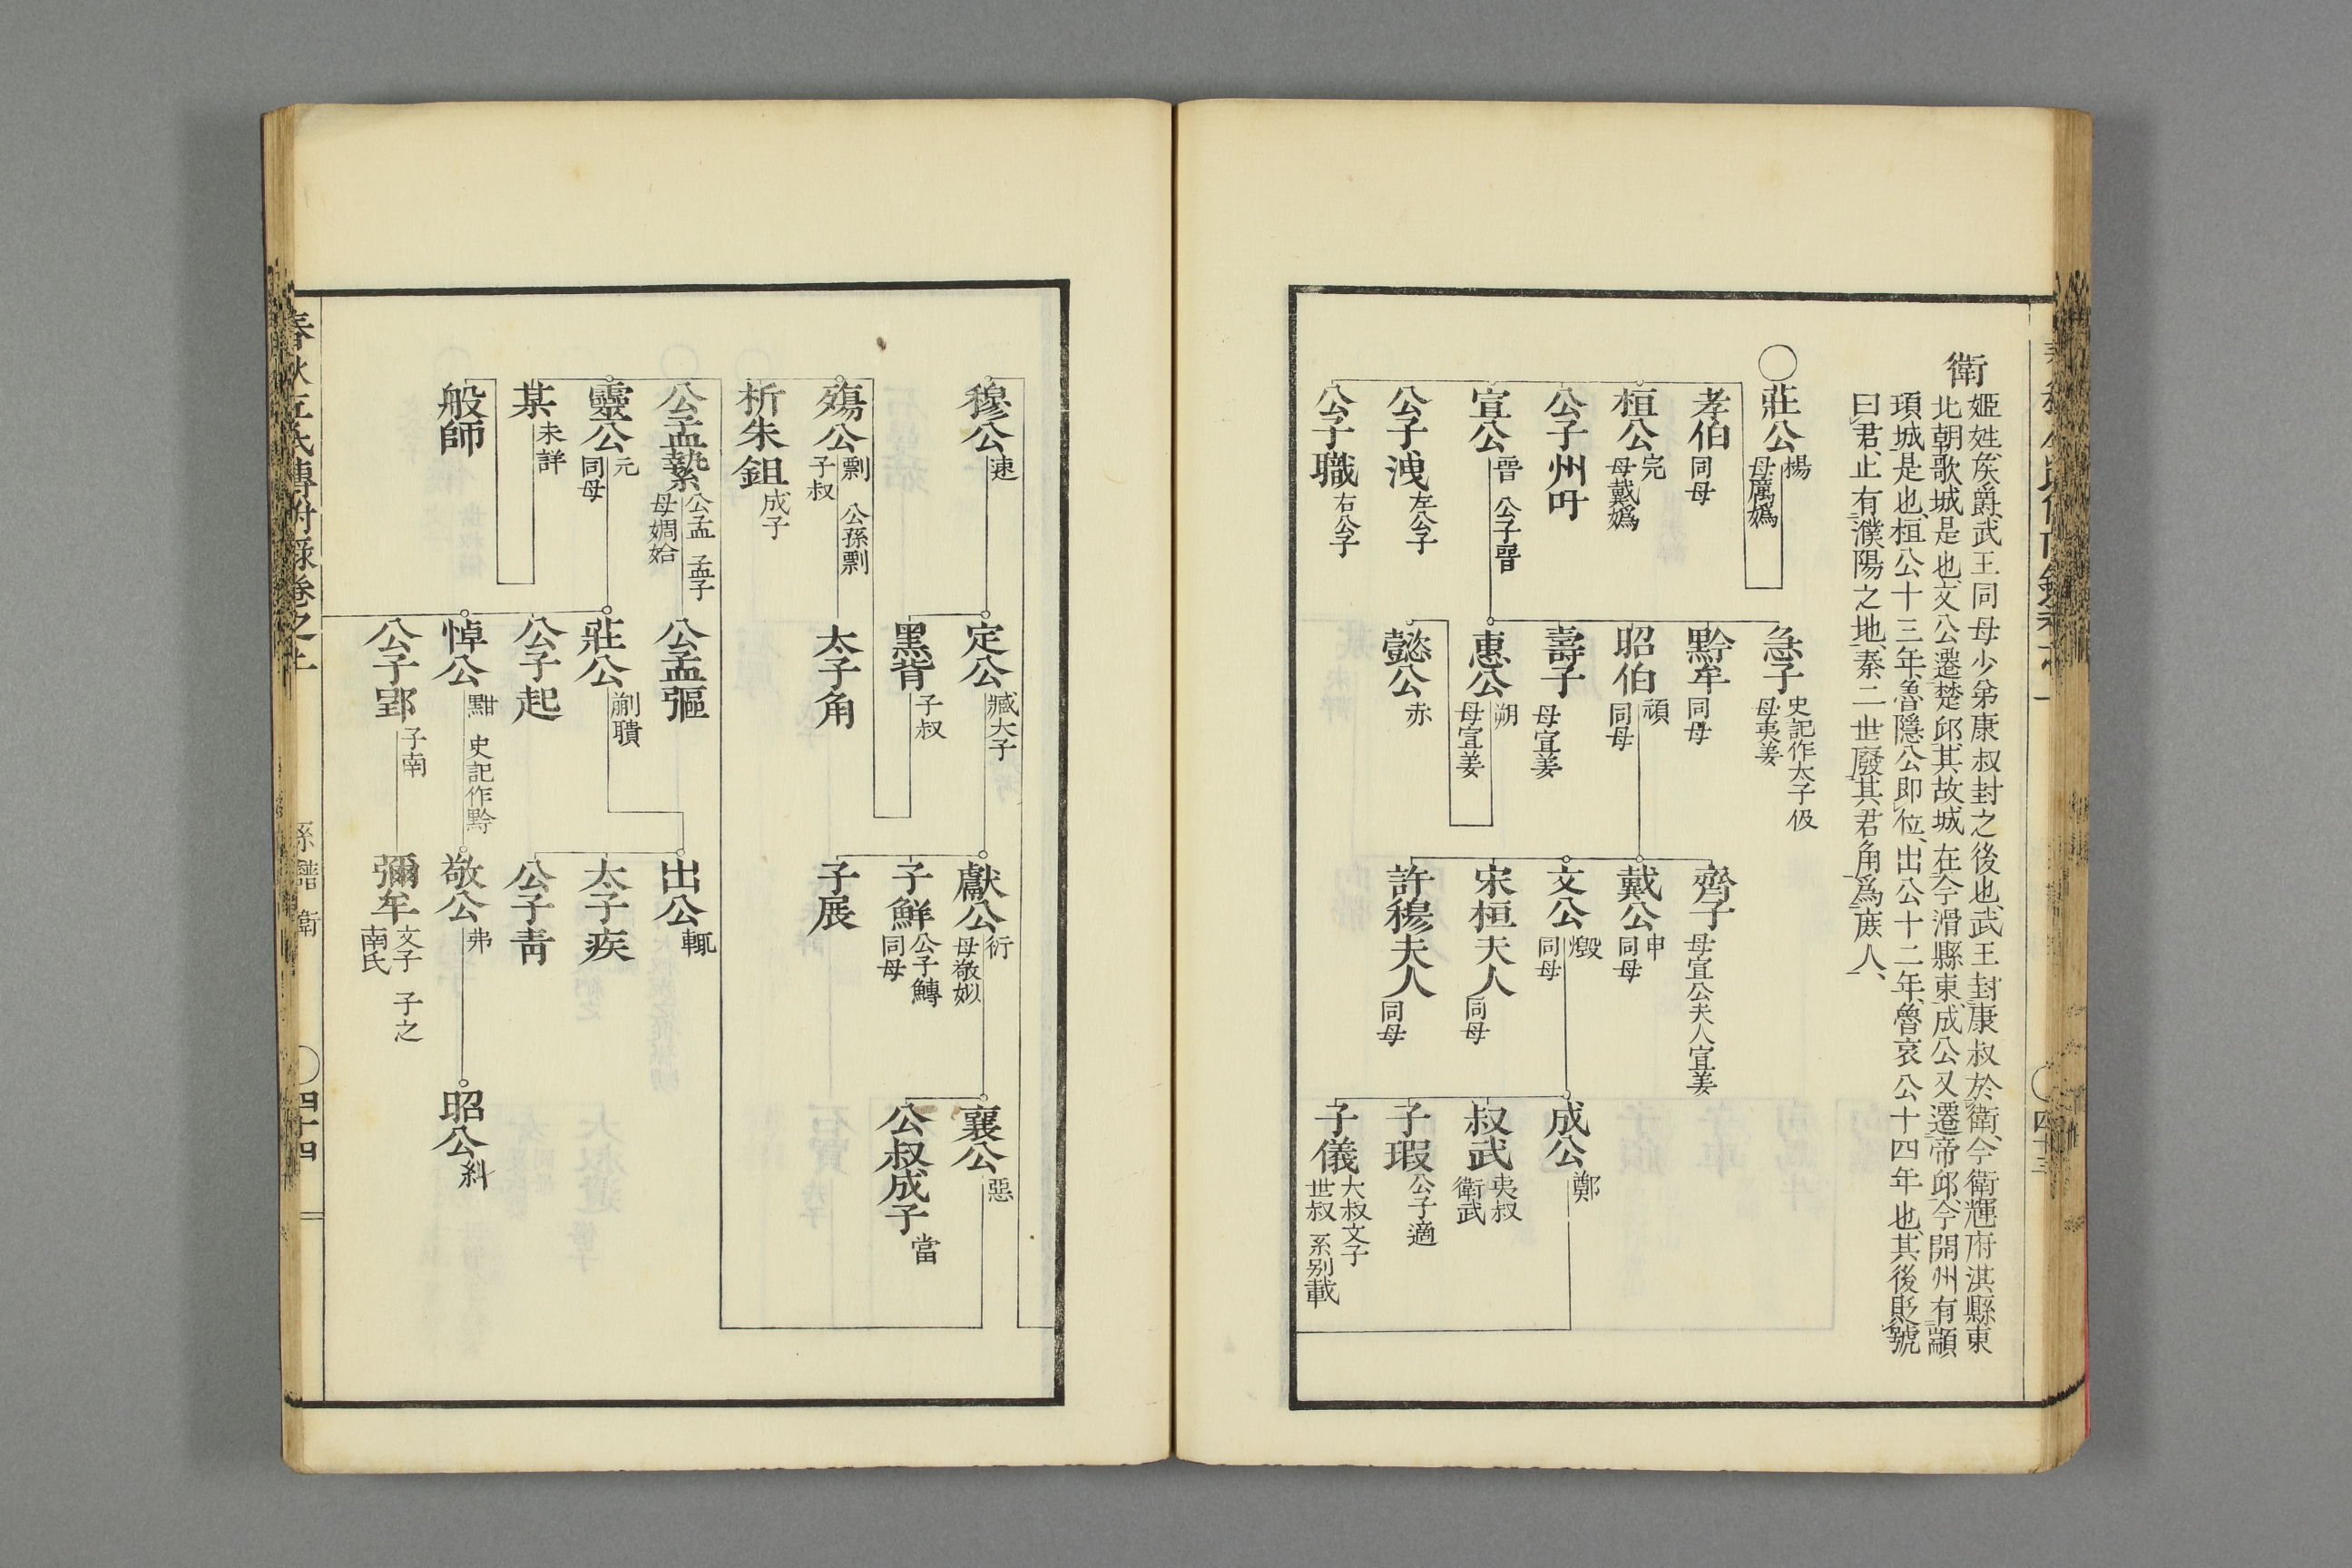 衛
姬姓矦爵武王同母少弟康叔封之後也武王封康叔於衛今衛輝府淇縣東
北朝歌城是也文公遷楚邱其故城在今滑縣東成公又遷帝邱今開州有顓
頊城是也桓公十三年魯隱公即位出公十二年魯哀公十四年也其後貶號
曰君止有濮陽之地秦二世廢其君角爲庶人
莊公 楊 母厲嬀
孝伯 同母
桓公 完 母戴嬀
公子州吁
宣公 晉 公子晉
公子洩 左公子
公子職 右公子
急子 史記作太子伋 母夷姜
黔牟 同母
昭伯 頑 同母
壽子 母宣姜
惠公 朔 母宣姜
懿公 赤
齊子 母宣公夫人宣姜
戴公 申 同母
文公 燬 同母
宋桓夫人 同母
許穆夫人 同母
成公 鄭
叔武 夷叔 衛武
子瑕 公子適
子儀 大叔文子 世叔 系别載
四十三
穆公 速
殤公 剽 公孫剽 子叔
析朱鉏 成子
公孟縶 公孟 孟子 母婤姶
靈公 元 同母
某 未詳
般師
定公 臧大子
黑背 子叔
太子角
公孟彄
莊公 蒯聵
公子起
悼公 黚 史記作黔
公子郢 子南
獻公 衎 母敬姒
子鮮 公子鱄 同母
子展
出公 輒
太子疾
公子靑
敬公 弗
彌牟 文子 子之 南氏
襄公 惡
公叔成子 當
昭公 糾
春秋左氏傳附錄卷之上
系譜 衛
四十四